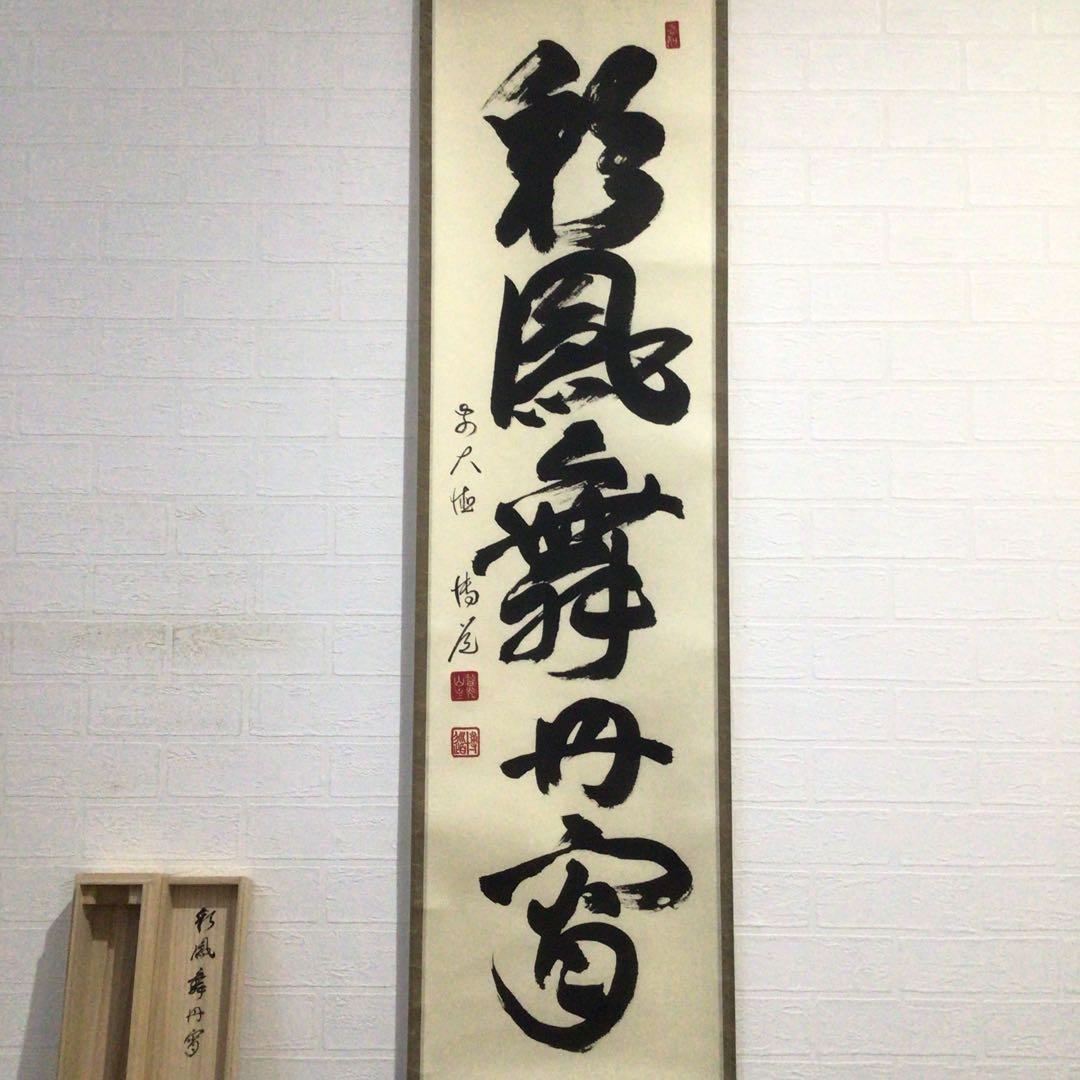 彩鳳舞丹霄
前大徳 博道
彩鳳舞丹霄